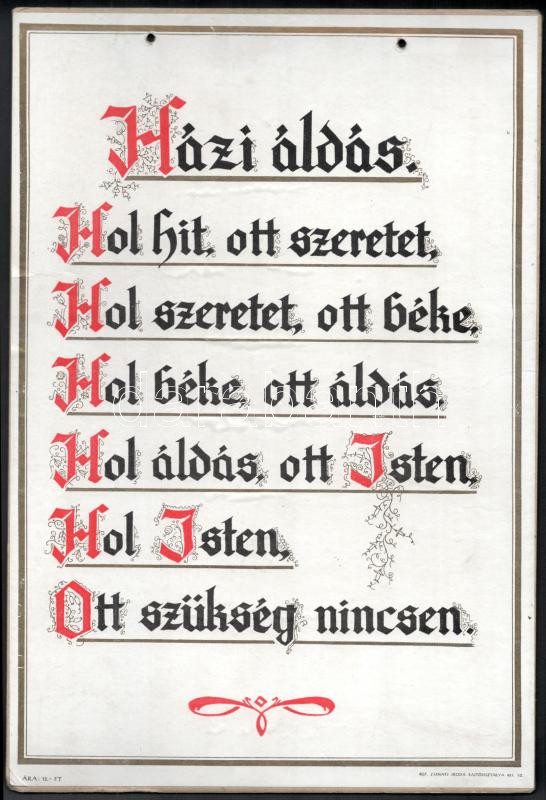 Házi áldás.
Hol hit, ott szeretet,
Hol szeretet, ott béke,
Hol béke, ott áldás,
Hol áldás, ott Isten,
Hol Isten,
Ott szükség nincsen.
ÁRA: 12.- FT
REF. ZSINATI IRODA SAJTÓOSZTÁLYA